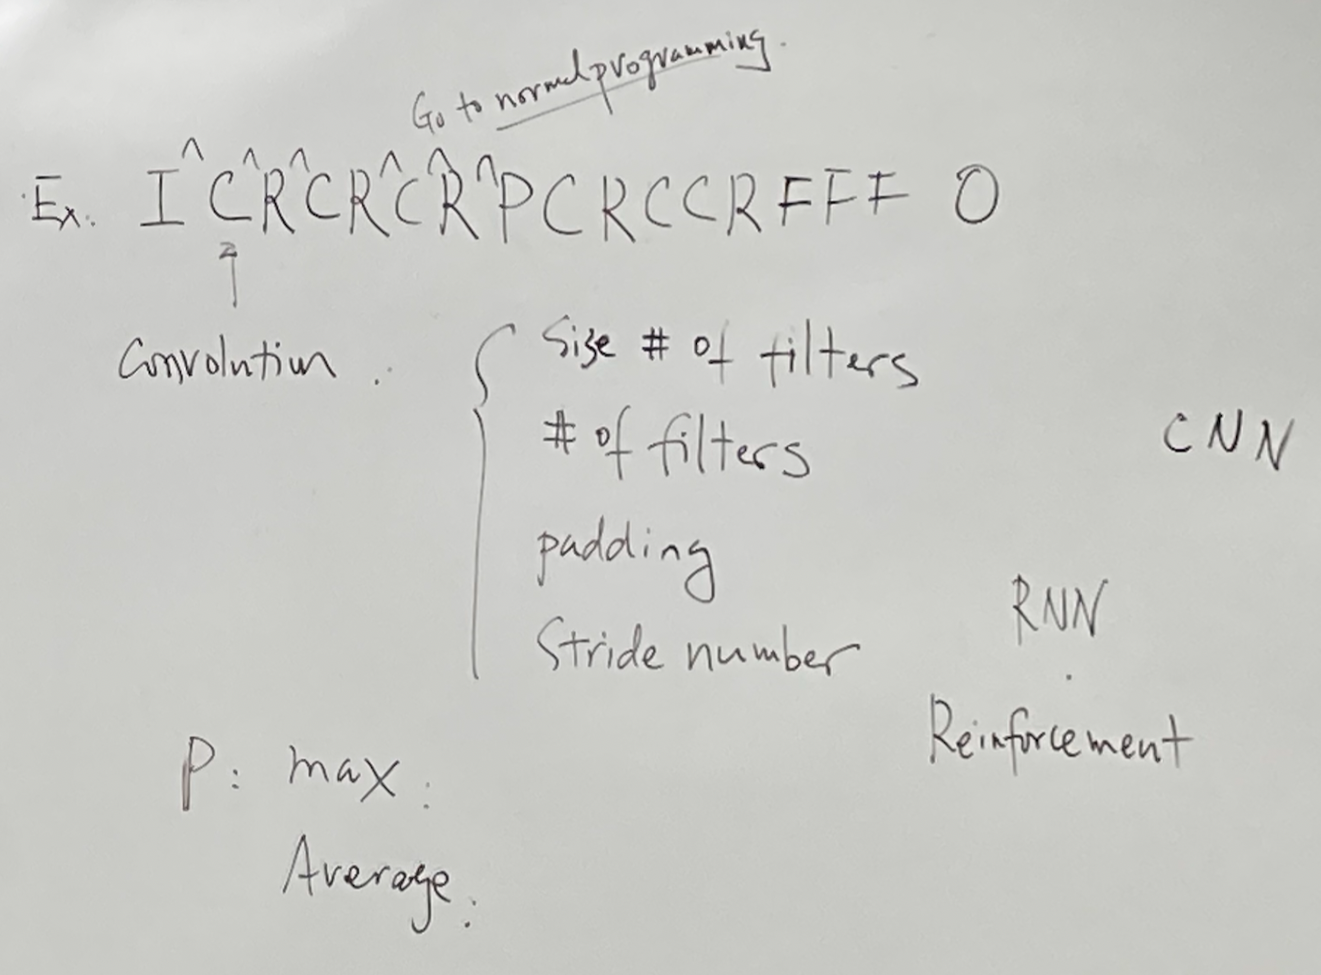 Go to normal programming.
Ex. I C R C R C R P C R C C R F F F O
Convolution.
Size # of filters
# of filters
padding
Stride number
CNN
RNN
Reinforcement
P: max:
Average: